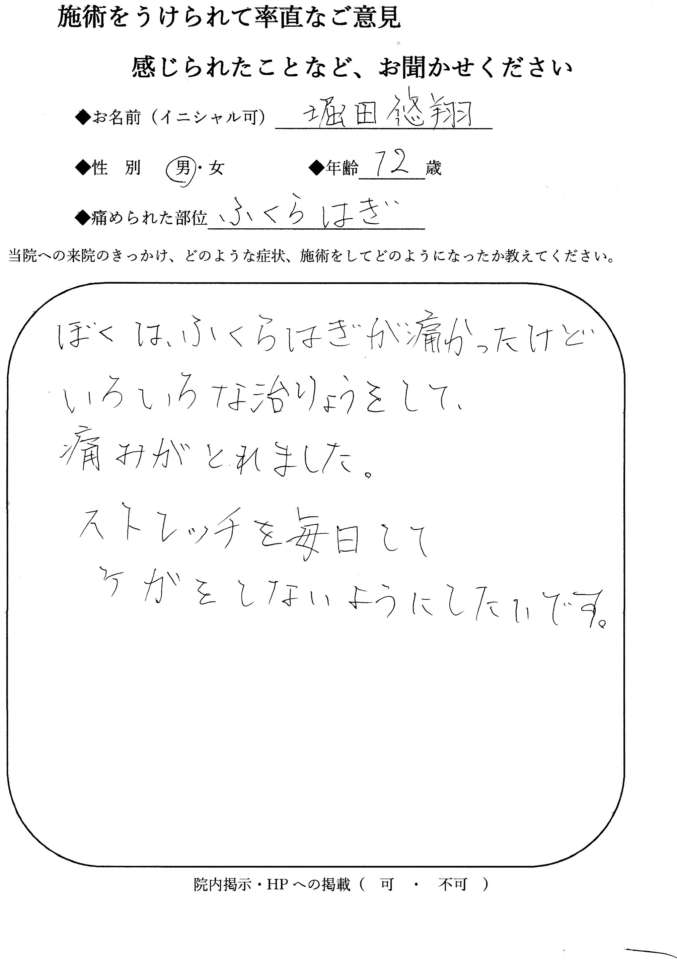 施術をうけられて率直なご意見
感じられたことなど、お聞かせください
◆お名前（イニシャル可） 堀田悠翔
◆性 別 男・女 ◆年齢 12 歳
◆痛められた部位 ふくらはぎ
当院への来院のきっかけ、どのような症状、施術をしてどのようになったか教えてください。
ぼくは、ふくらはぎが痛かったけど
いろいろな治りょうをして、
痛みがとれました。
ストレッチを毎日して
ケガをしないようにしたいです。
院内掲示・HPへの掲載（ 可 ・ 不可 ）